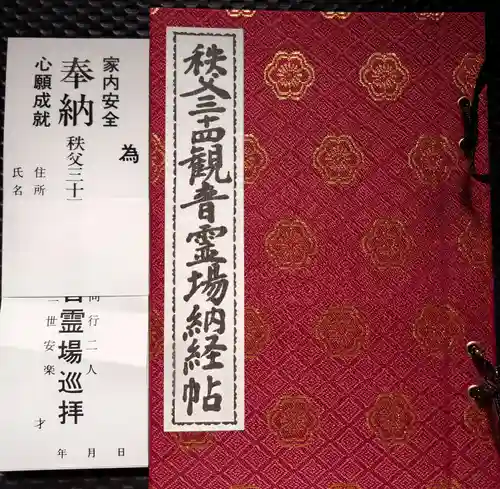 秩父三十四観音霊場納経帖
為
家内安全
奉納
心願成就
秩父三十
住所
氏名
音霊場巡拝
同行二人
二世安楽
才
年 月 日